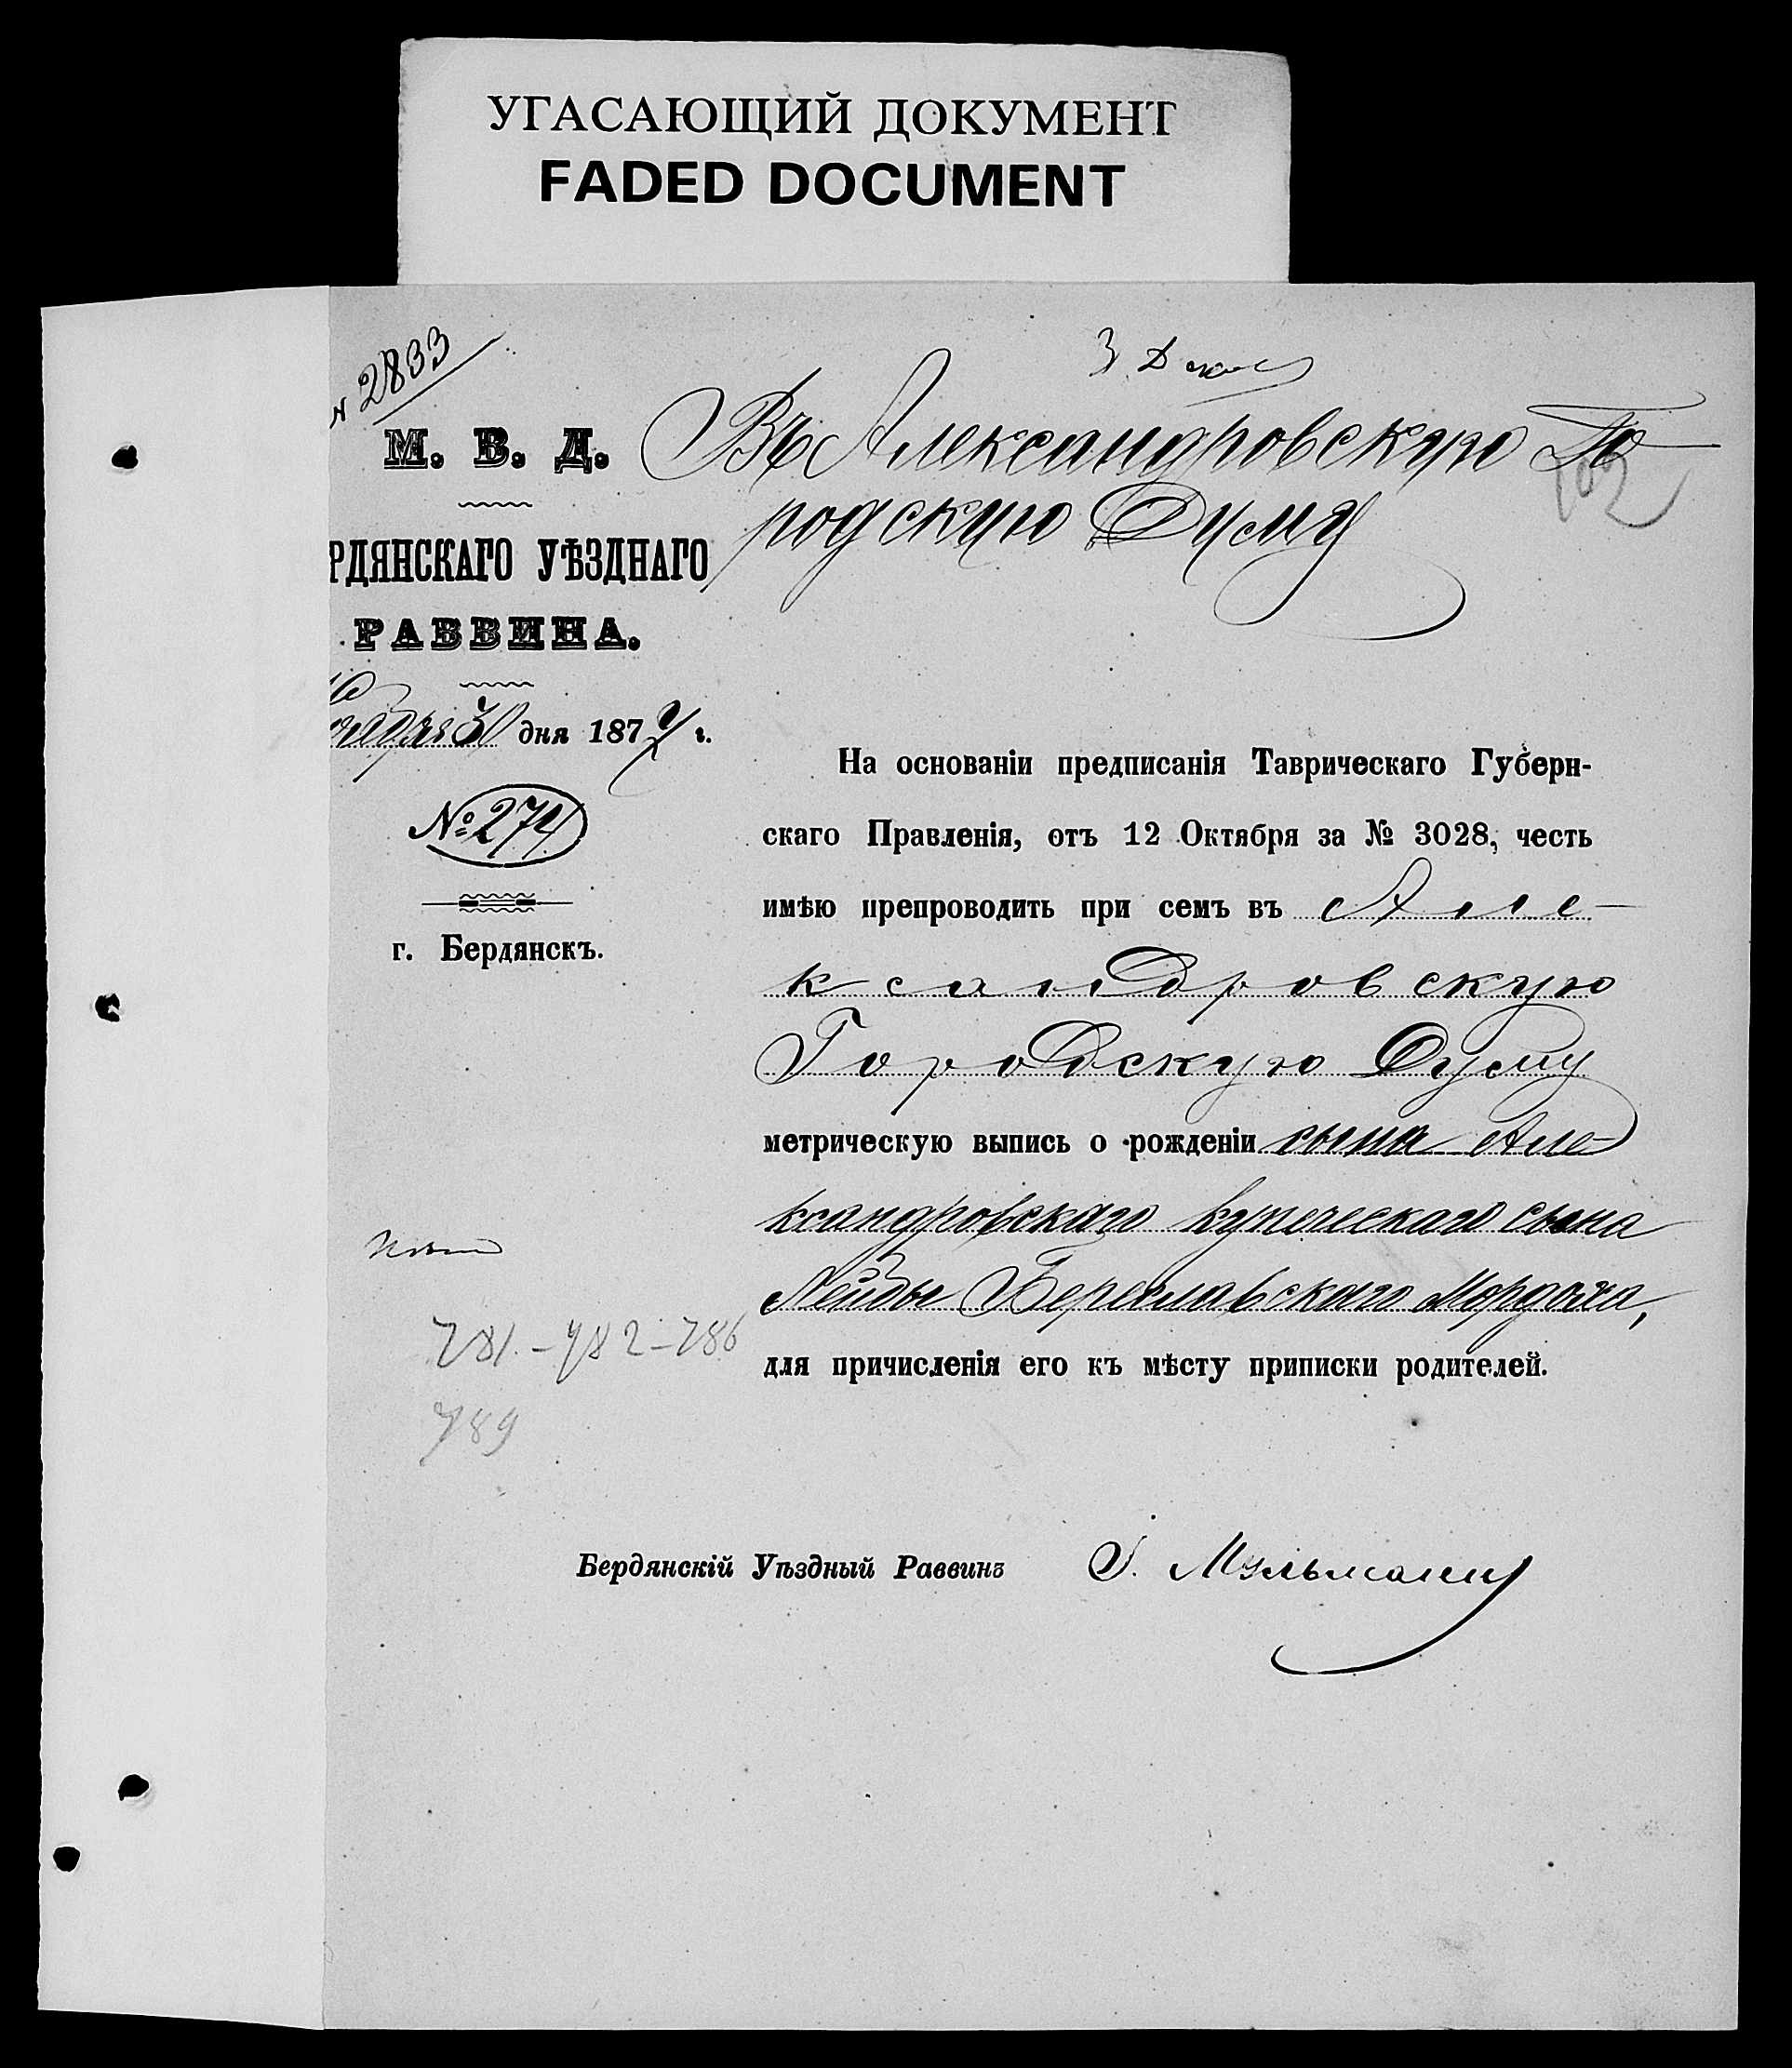 УГАСАЮЩИЙ ДОКУМЕНТ
FADED DOCUMENT
2833
3 Дек
М. В. Д.
Въ Александровскую Го-
родскую Думу
102
РДЯНСКАГО УѢЗДНАГО
РАВВИНА.
30 дня 1877 г.
№ 274
г. Бердянскъ.
На основаніи предписанія Таврическаго Губерн-
скаго Правленія, отъ 12 Октября за № 3028, честь
имѣю препроводить при семъ въ Але-
ксандровскую
Городскую Думу
метрическую выпись о рожденіи сына Але-
ксандровскаго купеческаго сына
Лейбы Береславскаго Мордоха,
для причисленія его къ мѣсту приписки родителей.
781. - 782 - 786
789
Бердянскій Уѣздный Раввинъ